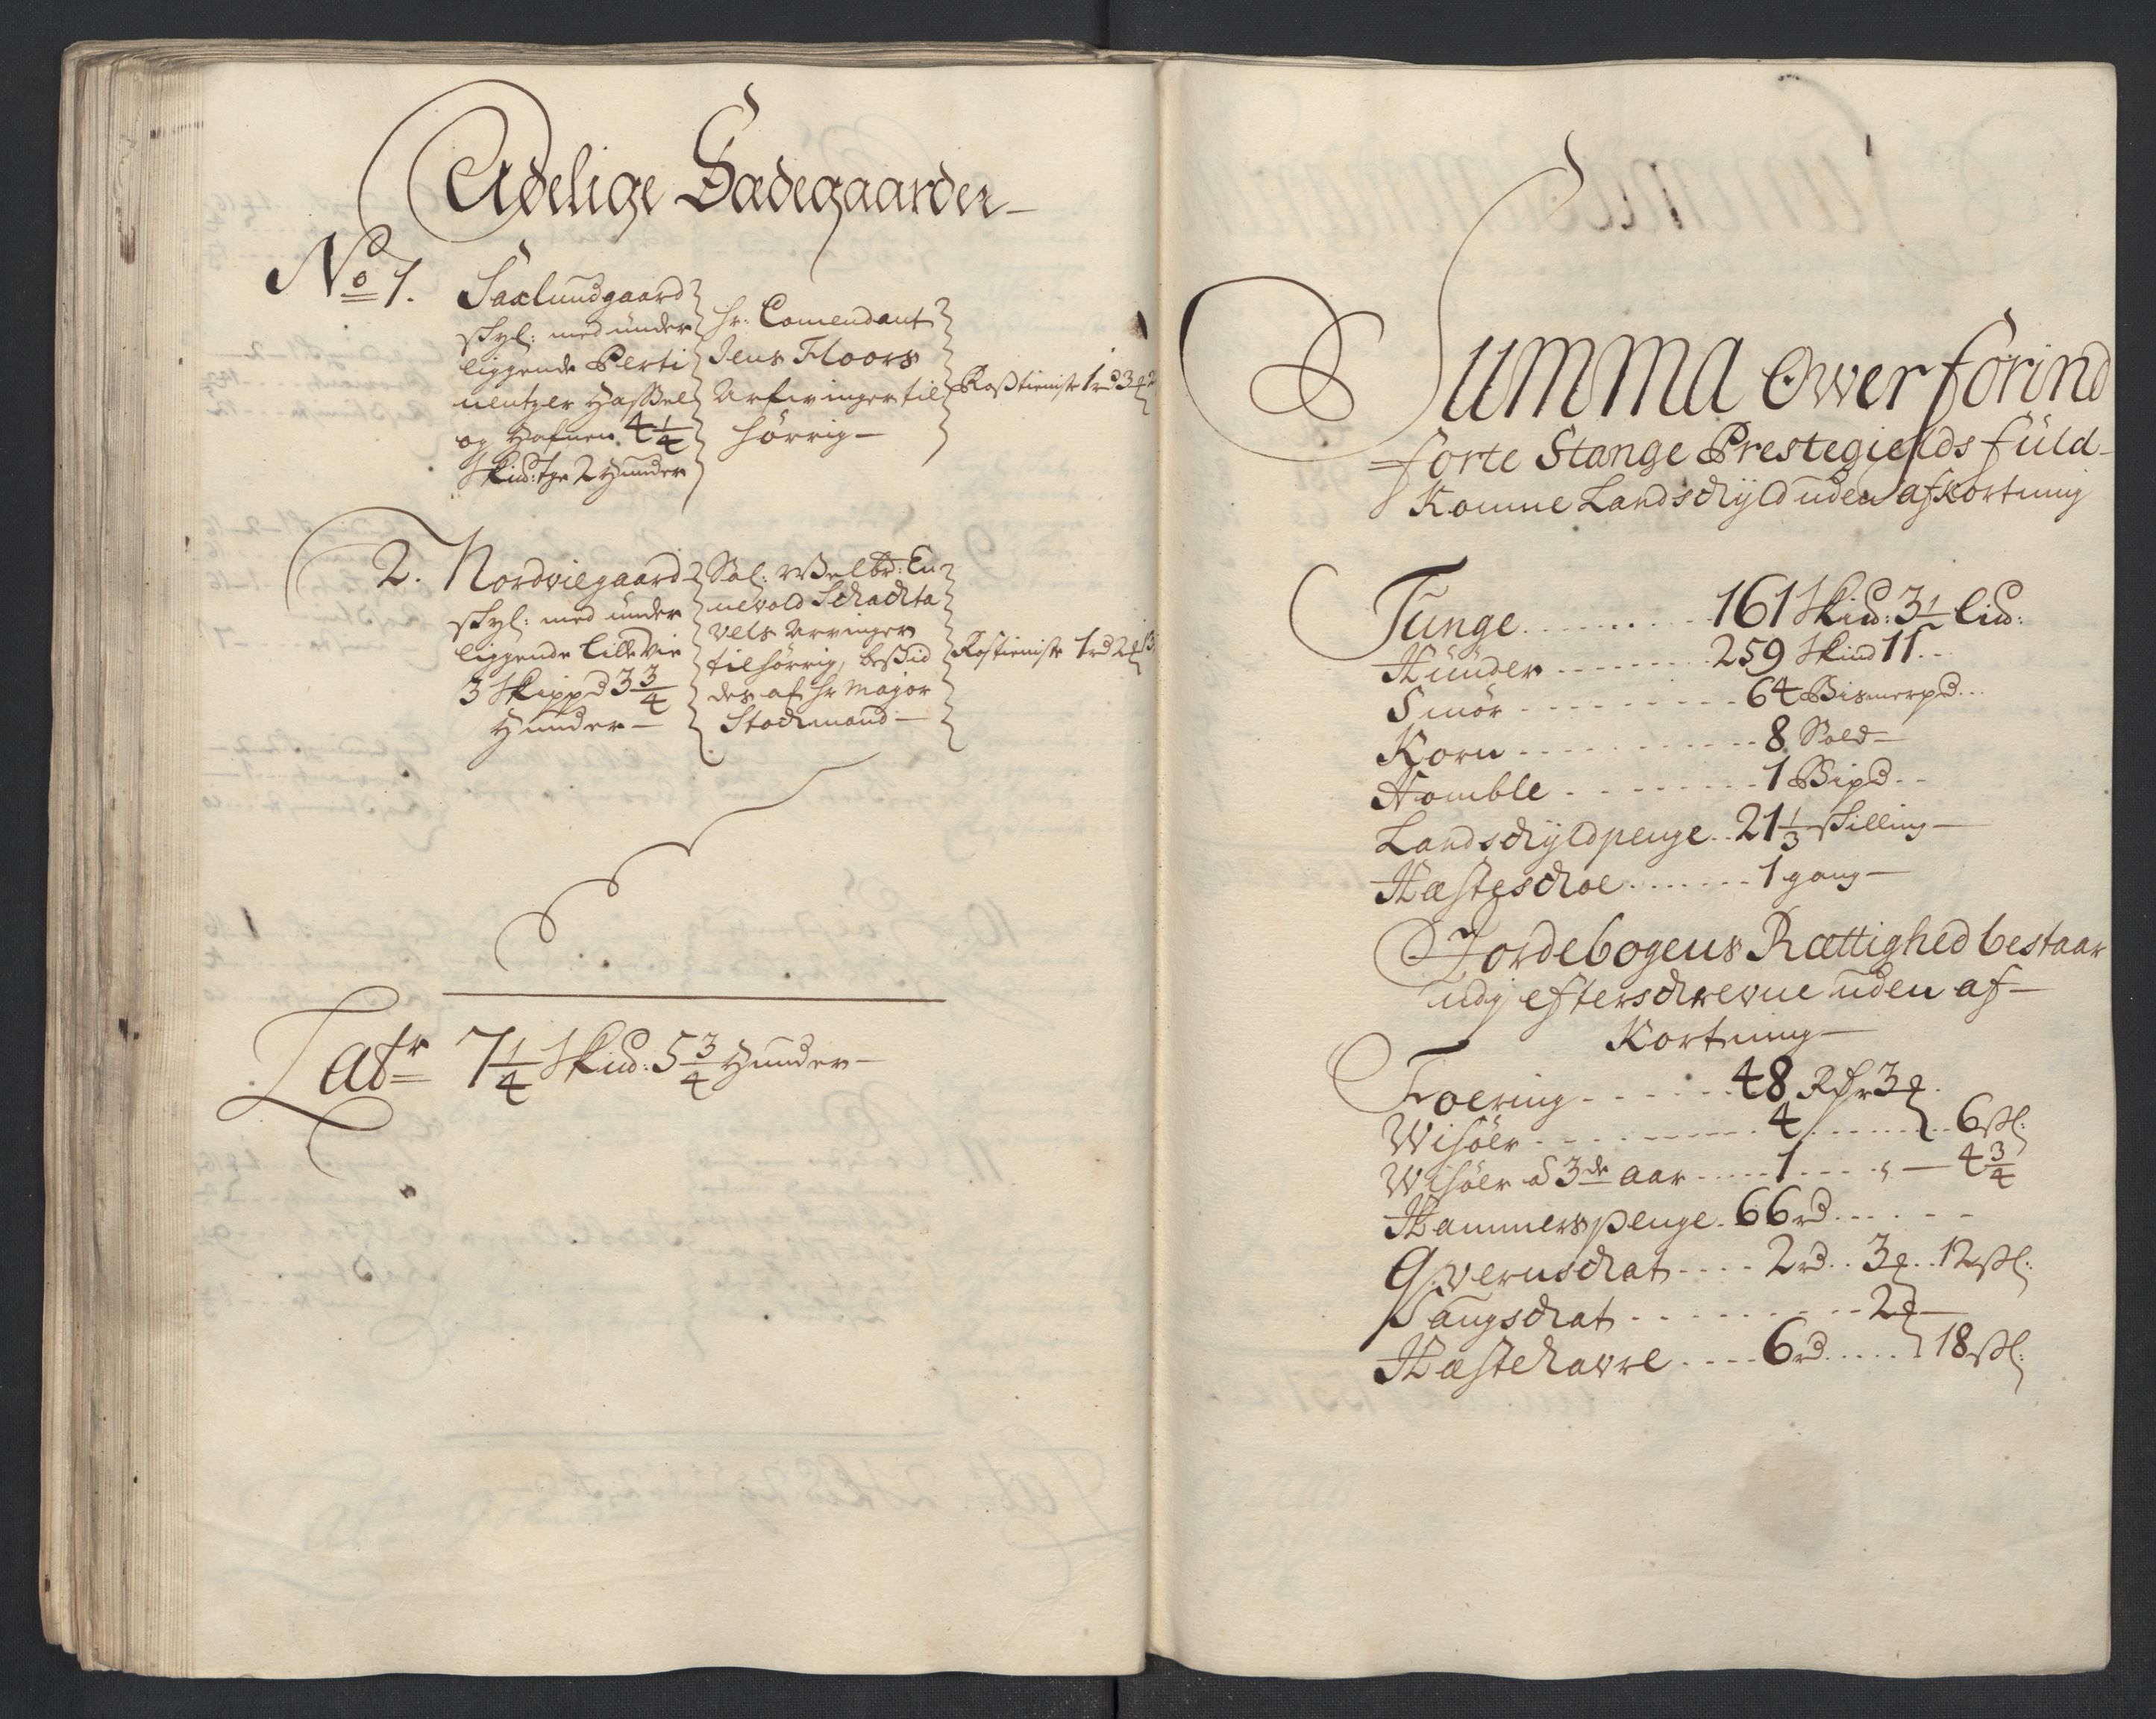 Adelige Sædegaarder
No 1. Saxlundgaard
skyl: med under
liggende Perti
nentzer Hassel
og Hafnen 4 1/4
Skind: Tge 2 Hunder
Hr: Comendant
Jens Floors
Arfvinger til
hørrig
Rostieniste 1 rd 3
2. Nordviegaard
skyl: med under
liggende Lille Vie
3 Skippd 3 3/4
Hunder
Sal: Welbr: En
nevold Schachta
vels Arvinger
tilhørrig, besid
des af Hr Major
Stochmand
Rostieniste 1 rd 2
Latr 7 1/4 Skid: 5 3/4 Hunder
Summa Ower forind
førte Stange Prestegields fuld
Komne Landschyld uden afkortning
Tunge 161 Skid: 3 1/2 Lid:
Hunder 259 Skind 11
Smør 64 Bismerpd
Korn 8 Sold
Homble 1 Bipd
Landschyldpenge 21 1/3 skilling
Hæsteschoe 1 gang
Jordebogens Rættighed bestaar
udj efterschrevne uden af
Kortning
Foering 48 Rdr 3
Wisøer 4 6 sk:
Wisøer 3de aar 1 4 3/4
Hammerspenge 66 rd
Qvernschat 2 rd 3 12 sk:
Saugschat 2
Hæstehavre 6 rd 18 sk: